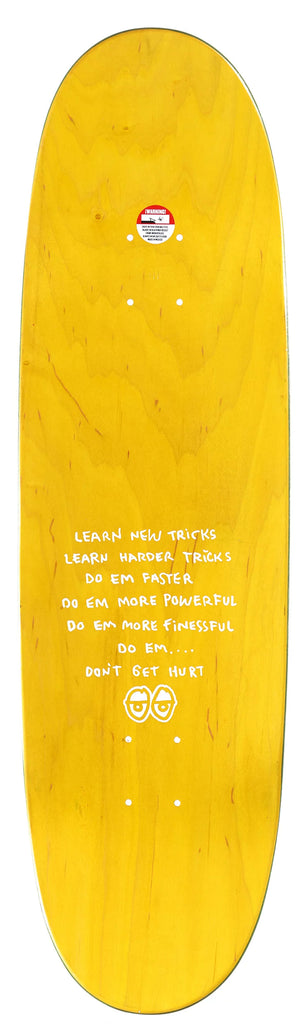 !WARNING!
LEARN NEW TRICKS
LEARN HARDER TRICKS
DO EM FASTER
DO EM MORE POWERFUL
DO EM MORE FINESSFUL
DO EM....
DON'T GET HURT